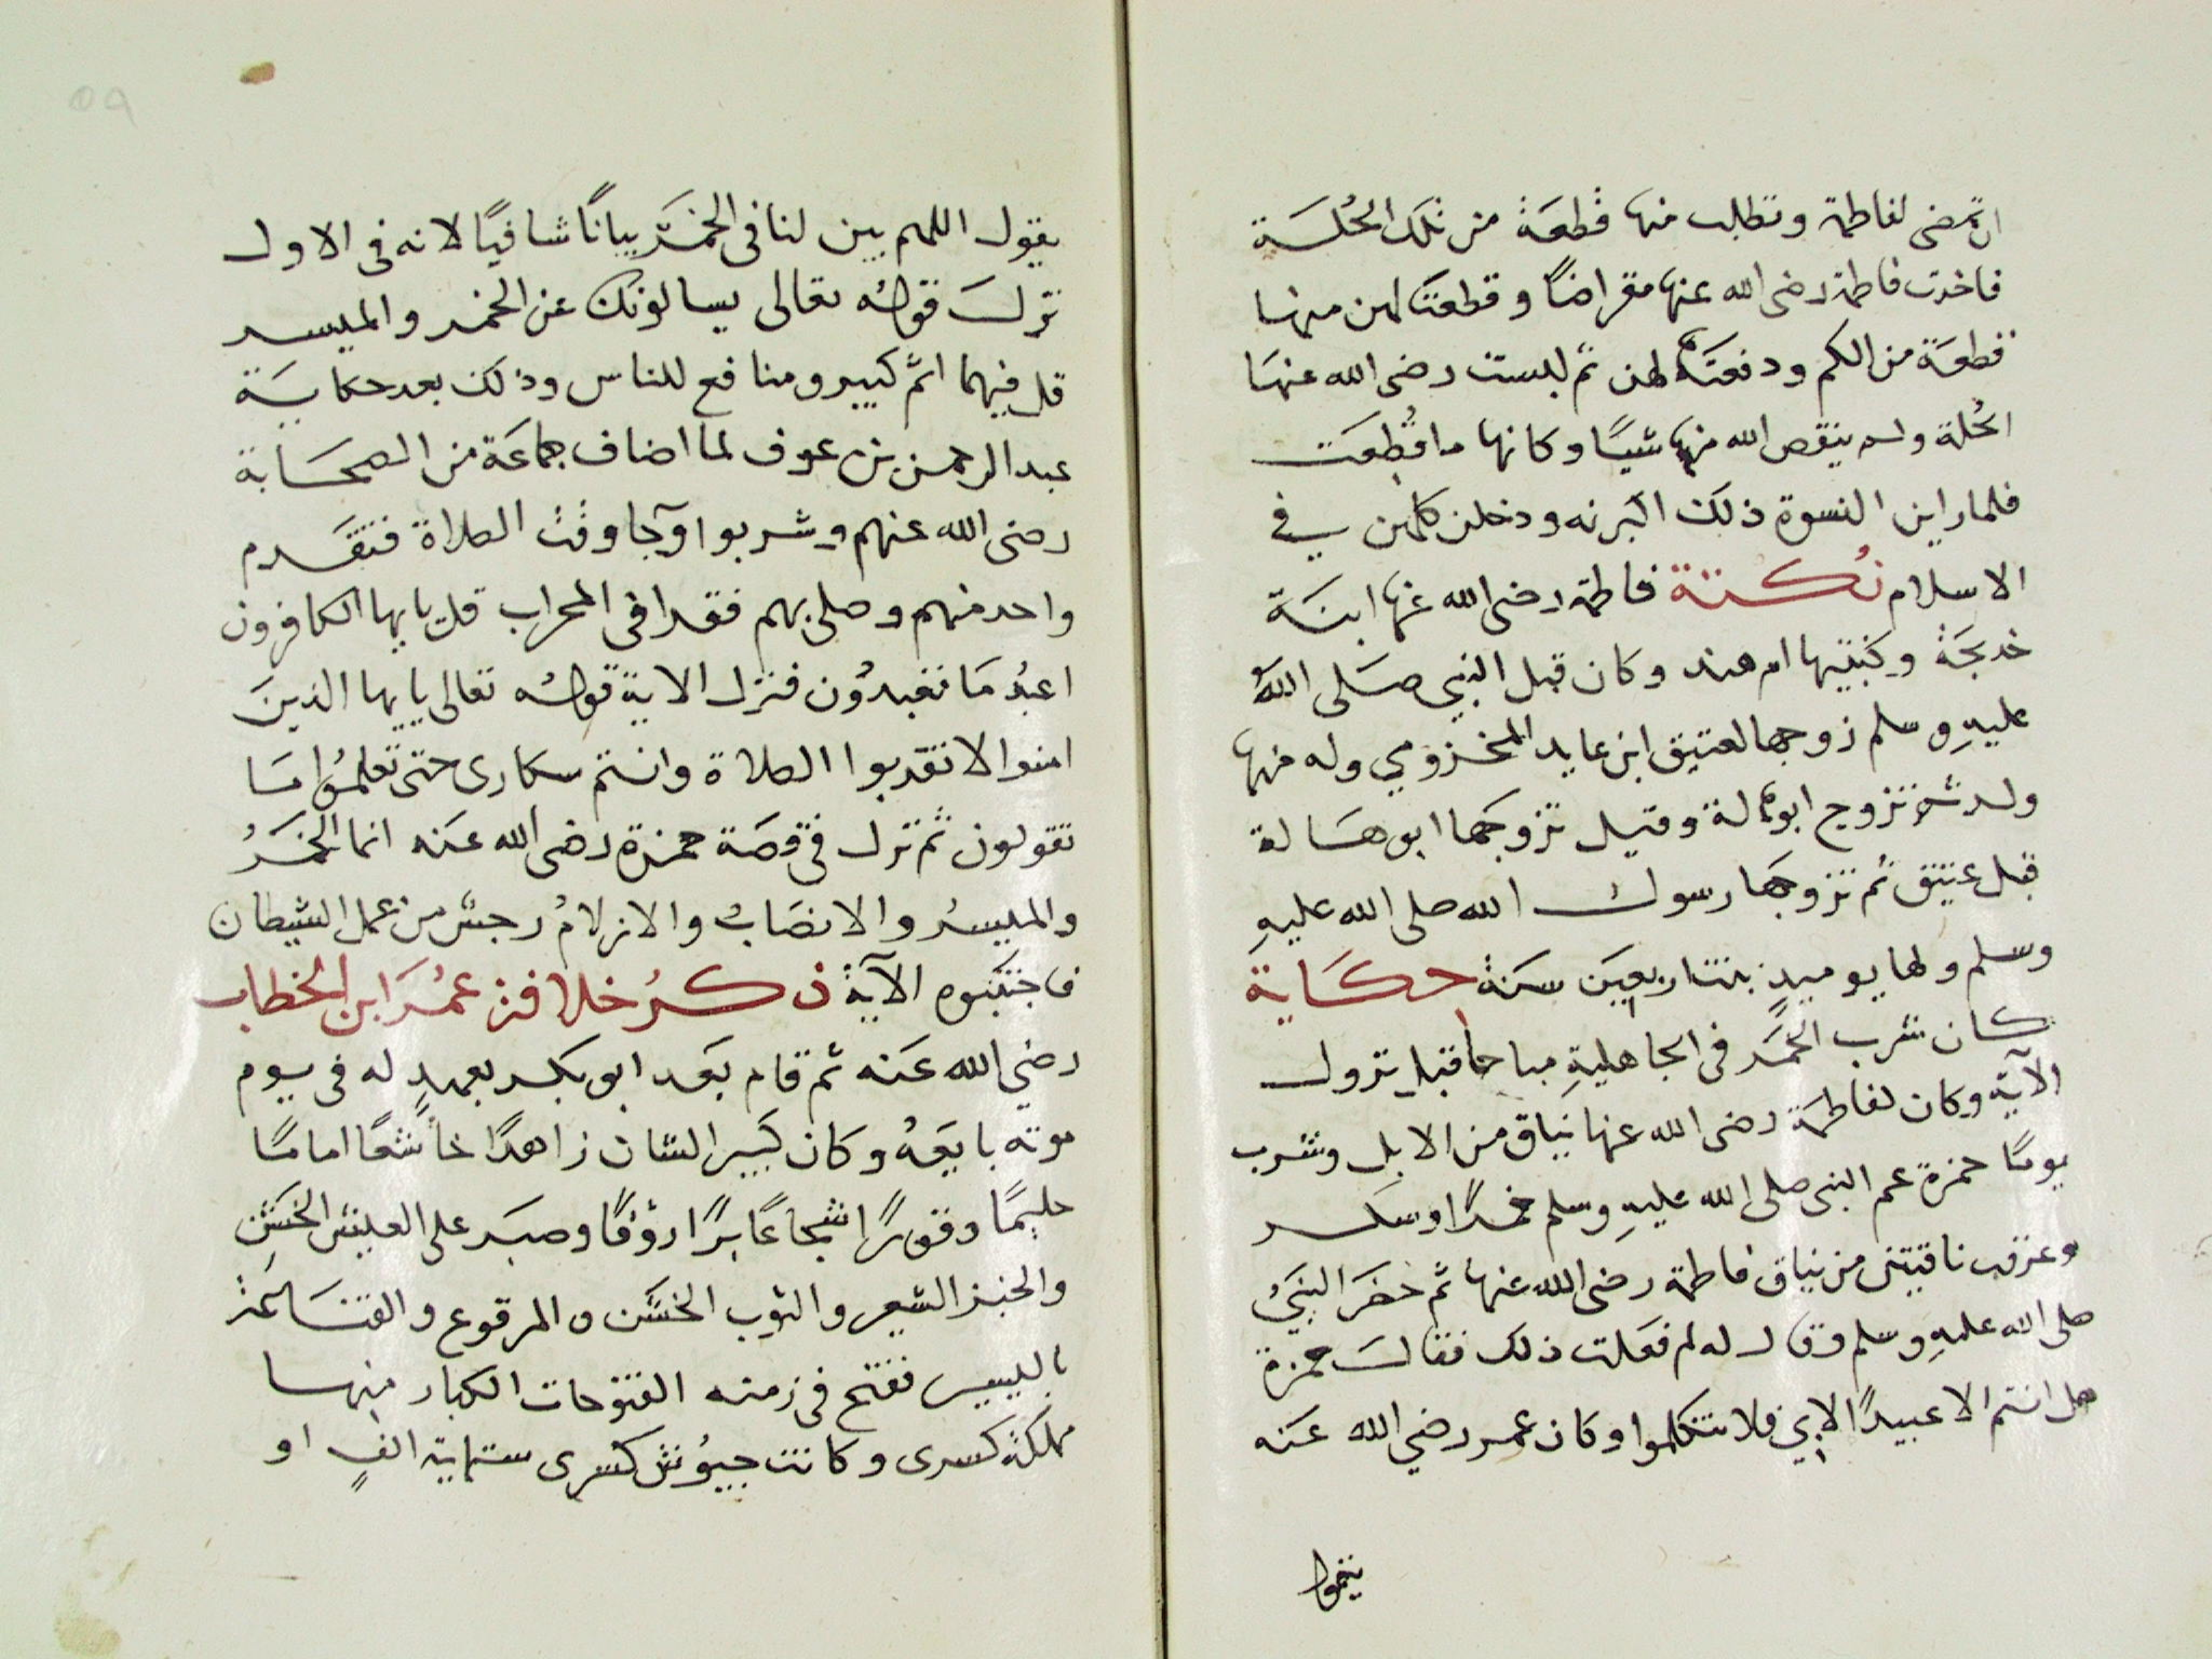 ان تمضى لفاطمة وتطلب منها قطعَة من تلك الحُلسَة
فاخدت فاطمة رضى الله عنها مقراضًا وقطعت لهن منها
قطعَة من الكم ودفعتَها لهن ثم لبست رضى الله عنهَا
الحُلة ولم ينقص الله منها شيًا وكانها ما قُطِعَت
فلما راين النسوة ذلك البرنه ودخلن كلهن في
الاسلام نُكتة فاطمة رضى الله عنها ابنَة
خديجَة وكنيتها ام هند وكان قبل النبي صَلى اللهُ
عليهِ وسلم زوجها لعتيق ابن عايد المخزومي وله منها
ولد ثم تزوج ابوهالة وقيل تزوجها ابوهَالة
قبل عتيق ثم تزوجهَا رسول الله صلى الله عليهِ
وسلم ولها يوميدٍ بنت اربعين سَنة حكَاية
كان شرب الخمَر فى الجاهليةِ مباحا قبل نزول
الآية وكان لفاطمَة رضى الله عنها نياق من الابل وشرب
يومًا حمزة عم النبى صلى الله عليهِ وسلم خمرًا وسكر
وعرقب ناقتين من نياق فاطمة رضى الله عنها ثم حضَر النبىُ
صلى الله عليهِ وسلم وقال له لم فعَلت ذلك فقالَ حمزة
هل انتم الا عبيدًا لابي فلا تتكلموا وكان عمر رضي الله عنَه
يقول
يقول اللهم بين لنا فى الخمَر بيانًا شافيًا لانه فى الاول
نزلَ قولُه تعالى يسالونك عن الخمر والميسر
قل فيهما اثم كبير ومنافع للناس وذلك بعد حكايَة
عبد الرحمن بن عوف لما اضاف جماعَة من الصحَابة
رضى الله عنهم وشربوا وجا وقت الصلاة فتقَدم
واحد منهم وصلى بهم فقرا فى المحراب قل يايها الكافرون
اعبُد مَا تعبدوُن فنزل الاية قولُه تعالى يايها الذينَ
امنوا لا تقربوا الصلاة وانتم سكارى حتى تعلمُوا مَا
تقولون ثم نزل فى قصَة حمزة رضى الله عنَه انما الخمَرُ
والميسرُ والانصَابُ والازلامُ رجسٌ من عمل الشيطان
فاجتنَبوه الآية ذكرُ خلافة عمُرَ ابن الخطاب
رضي الله عنَه ثم قام بعَد ابوبكر بعهدٍ له فى يوم
موته بايعَهُ وكان كبَير الشان زاهدًا خاشعًا امامًا
حليمًا وقورًا شجاعًا برًا رؤفًا وصبَر على العيش الخشَن
والخبز الشعير والثوب الخشَن والمرقوع والقنَاعَة
باليسير ففتح فى زمنه الفتوحات الكبار منها
مملكَة كسرى وكانت جيوُش كسرى ستماية الفٍ او